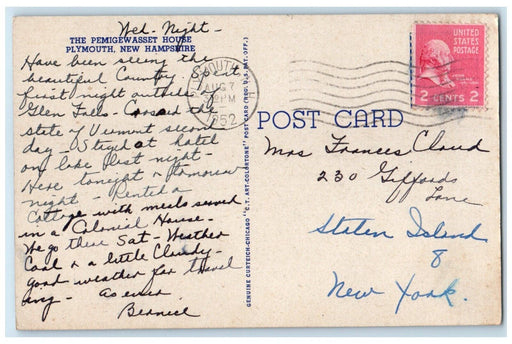 Wed - Night -
THE PEMIGEWASSET HOUSE
PLYMOUTH, NEW HAMPSHIRE
Have been seeing the
beautiful Country. Spent
first night outside
Glen Falls - Crossed the
state of Vermont second
day - Stayed at hotel
on lake last night -
Here tonight & tomorrow
night - Rented a
Cottage - with meals served
in a Colonial House -
We go there Sat - Weather
Cool & a little Cloudy -
good weather for travel
ing - As ever
Bernice
GENUINE CURTEICH-CHICAGO "C.T. ART-COLORTONE" POST CARD (REG. U.S. PAT. OFF.)
AUG 7
PM
1952
UNITED
STATES
POSTAGE
2 CENTS 2
POST CARD
Mrs Frances Cloud
230 Giffords
Lane
Staten Island
8
New York.